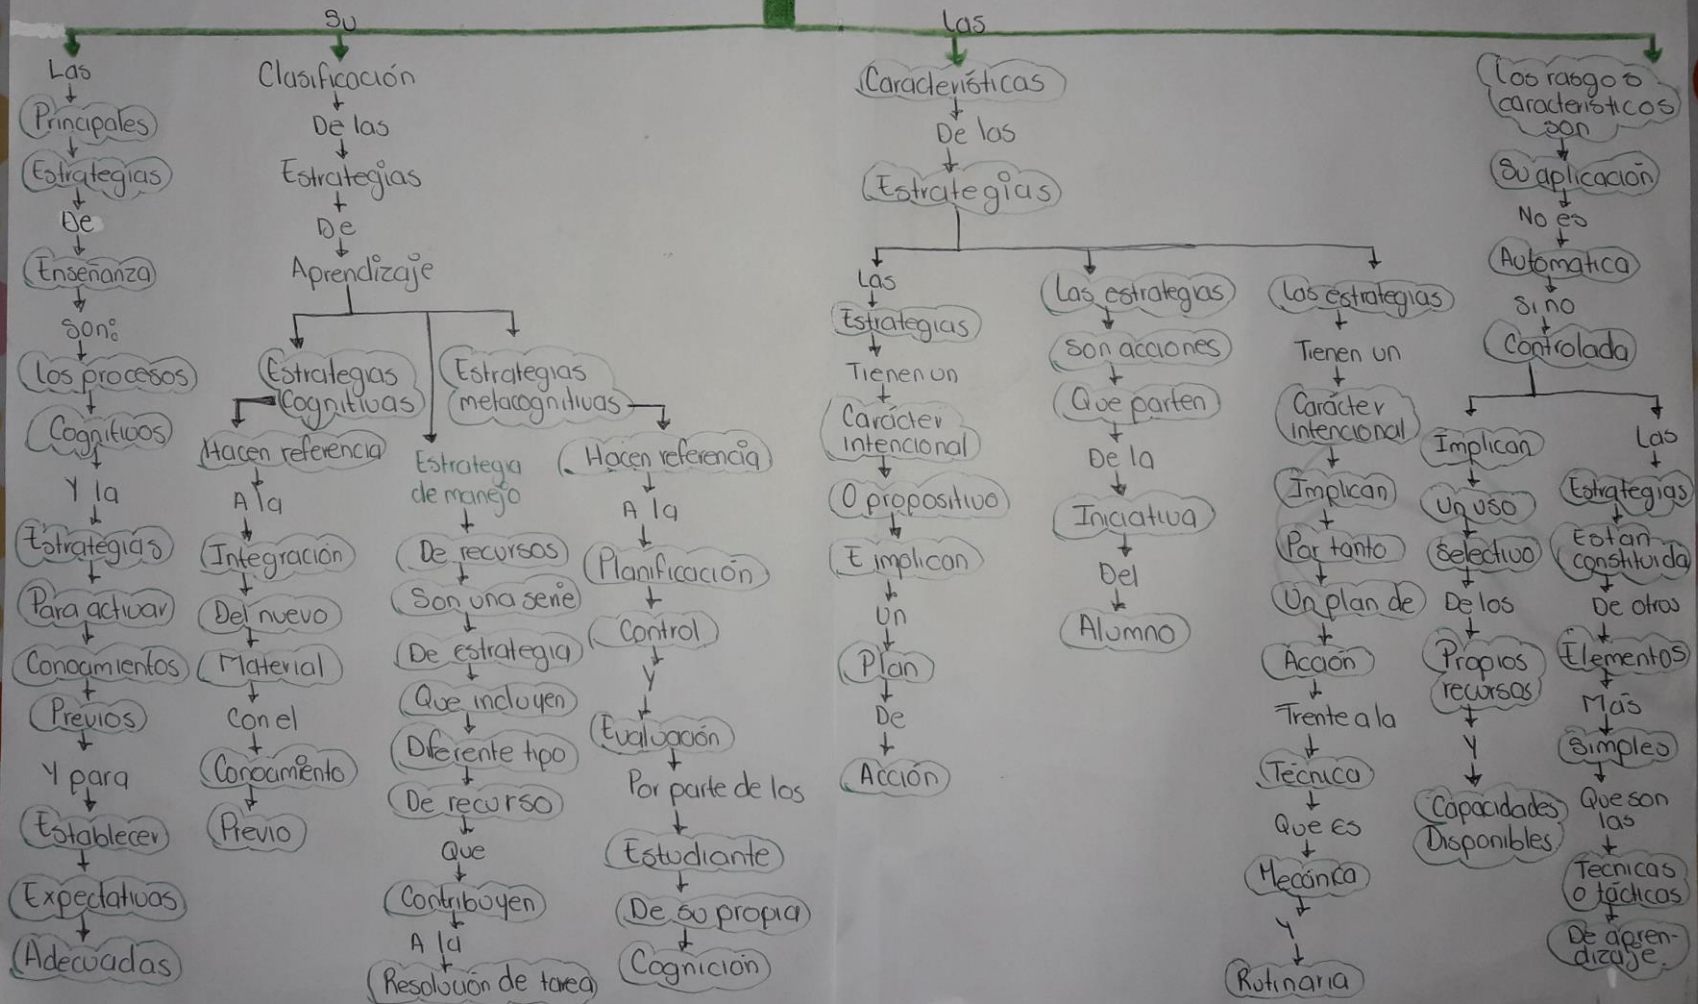 Su
Las
Las
Principales
Estrategias
De
Enseñanza
Son:
Los procesos
Cognitivos
Y la
Estrategias
Para activar
Conocimientos
Previos
Y para
Establecer
Expectativas
Adecuadas
Clasificación
De las
Estrategias
De
Aprendizaje
Estrategias
Cognitivas
Hacen referencia
A la
Integración
Del nuevo
Material
Con el
Conocimiento
Previo
Estrategia
de manejo
De recursos
Son una serie
De estrategia
Que incluyen
Diferente tipo
De recurso
Que
Contribuyen
A la
Resolución de tarea
Estrategias
metacognitivas
Hacen referencia
A la
Planificación
Control
Y
Evaluación
Por parte de los
Estudiante
De su propia
Cognición
Características
De las
Estrategias
Las
Estrategias
Tienen un
Carácter
intencional
O propositivo
E implican
Un
Plan
De
Acción
Las estrategias
Son acciones
Que parten
De la
Iniciativa
Del
Alumno
Las estrategias
Tienen un
Carácter
intencional
Implican
Por tanto
Un plan de
Acción
Frente a la
Técnica
Que es
Mecánica
Y
Rutinaria
Los rasgos
característicos
son
Su aplicación
No es
Automatica
Sino
Controlada
Implican
Un uso
Selectivo
De los
Propios
recursos
Y
Capacidades
Disponibles
Las
Estrategias
Están
constituida
De otros
Elementos
Más
Simples
Que son
las
Técnicas
o tácticas
De apren-
dizaje.